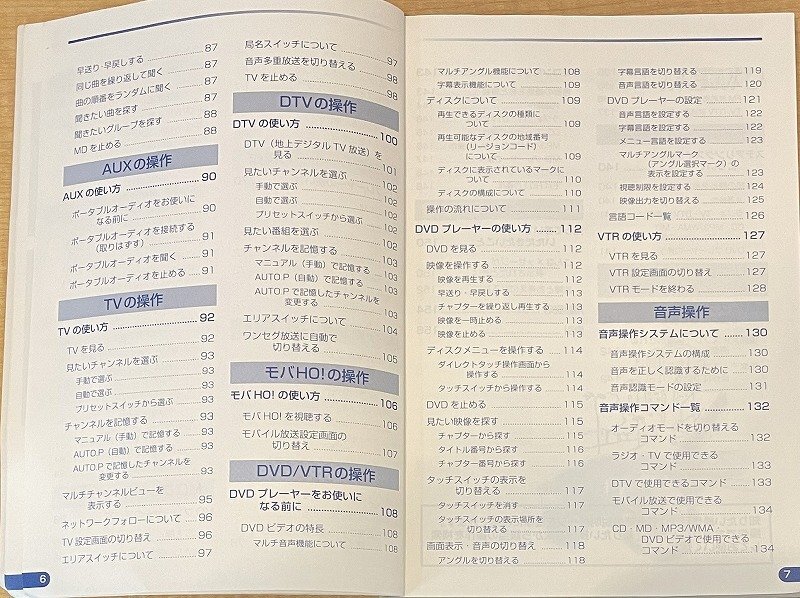 早送り・早戻しする 87
同じ曲を繰り返して聞く 87
曲の順番をランダムに聞く 87
聞きたい曲を探す 87
聞きたいグループを探す 88
MDを止める 88
AUXの操作
AUXの使い方 90
ポータブルオーディオをお使いに
なる前に 90
ポータブルオーディオを接続する
(取りはずす) 91
ポータブルオーディオを聞く 91
ポータブルオーディオを止める 91
TVの操作
TVの使い方 92
TVを見る 92
見たいチャンネルを選ぶ 93
手動で選ぶ 93
自動で選ぶ 93
プリセットスイッチから選ぶ 93
チャンネルを記憶する 93
マニュアル(手動)で記憶する 93
AUTO.P(自動)で記憶する 93
AUTO.Pで記憶したチャンネルを
変更する 93
マルチチャンネルビューを
表示する 95
ネットワークフォローについて 96
TV設定画面の切り替え 96
エリアスイッチについて 97
6
局名スイッチについて 97
音声多重放送を切り替える 98
TVを止める 98
DTVの操作
DTVの使い方 100
DTV(地上デジタルTV放送)を
見る 101
見たいチャンネルを選ぶ 102
手動で選ぶ 102
自動で選ぶ 102
プリセットスイッチから選ぶ 102
見たい番組を選ぶ 102
チャンネルを記憶する 103
マニュアル(手動)で記憶する 103
AUTO.P(自動)で記憶する 103
AUTO.Pで記憶したチャンネルを
変更する 103
エリアスイッチについて 104
ワンセグ放送に自動で
切り替える 105
モバHO!の操作
モバHO!の使い方 106
モバHO!を視聴する 106
モバイル放送設定画面の
切り替え 107
DVD/VTRの操作
DVDプレーヤーをお使いに
なる前に 108
DVDビデオの特長 108
マルチ音声機能について 108
マルチアングル機能について 108
字幕表示機能について 109
ディスクについて 109
再生できるディスクの種類に
ついて 109
再生可能なディスクの地域番号
(リージョンコード)
について 109
ディスクに表示されているマークに
ついて 110
ディスクの構成について 110
操作の流れについて 111
DVDプレーヤーの使い方 112
DVDを見る 112
映像を操作する 112
映像を再生する 112
早送り・早戻しする 113
チャプターを繰り返し再生する 113
映像を一時止める 113
映像を止める 113
ディスクメニューを操作する 114
ダイレクトタッチ操作画面から
操作する 114
タッチスイッチから操作する 114
DVDを止める 115
見たい映像を探す 115
チャプターから探す 115
タイトル番号から探す 116
チャプター番号から探す 116
タッチスイッチの表示を
切り替える 117
タッチスイッチを消す 117
タッチスイッチの表示場所を
切り替える 117
画面表示・音声の切り替え 118
アングルを切り替える 118
字幕言語を切り替える 119
音声言語を切り替える 120
DVDプレーヤーの設定 121
音声言語を設定する 122
字幕言語を設定する 122
メニュー言語を設定する 123
マルチアングルマーク
(アングル選択マーク)の
表示を設定する 123
視聴制限を設定する 124
映像出力を切り替える 125
言語コード一覧 126
VTRの使い方 127
VTRを見る 127
VTR設定画面の切り替え 127
VTRモードを終わる 128
音声操作
音声操作システムについて 130
音声操作システムの構成 130
音声を正しく認識するために 130
音声認識モードの設定 131
音声操作コマンド一覧 132
オーディオモードを切り替える
コマンド 132
ラジオ・TVで使用できる
コマンド 133
DTVで使用できるコマンド 133
モバイル放送で使用できる
コマンド 134
CD・MD・MP3/WMA・
DVDビデオで使用できる
コマンド 134
7